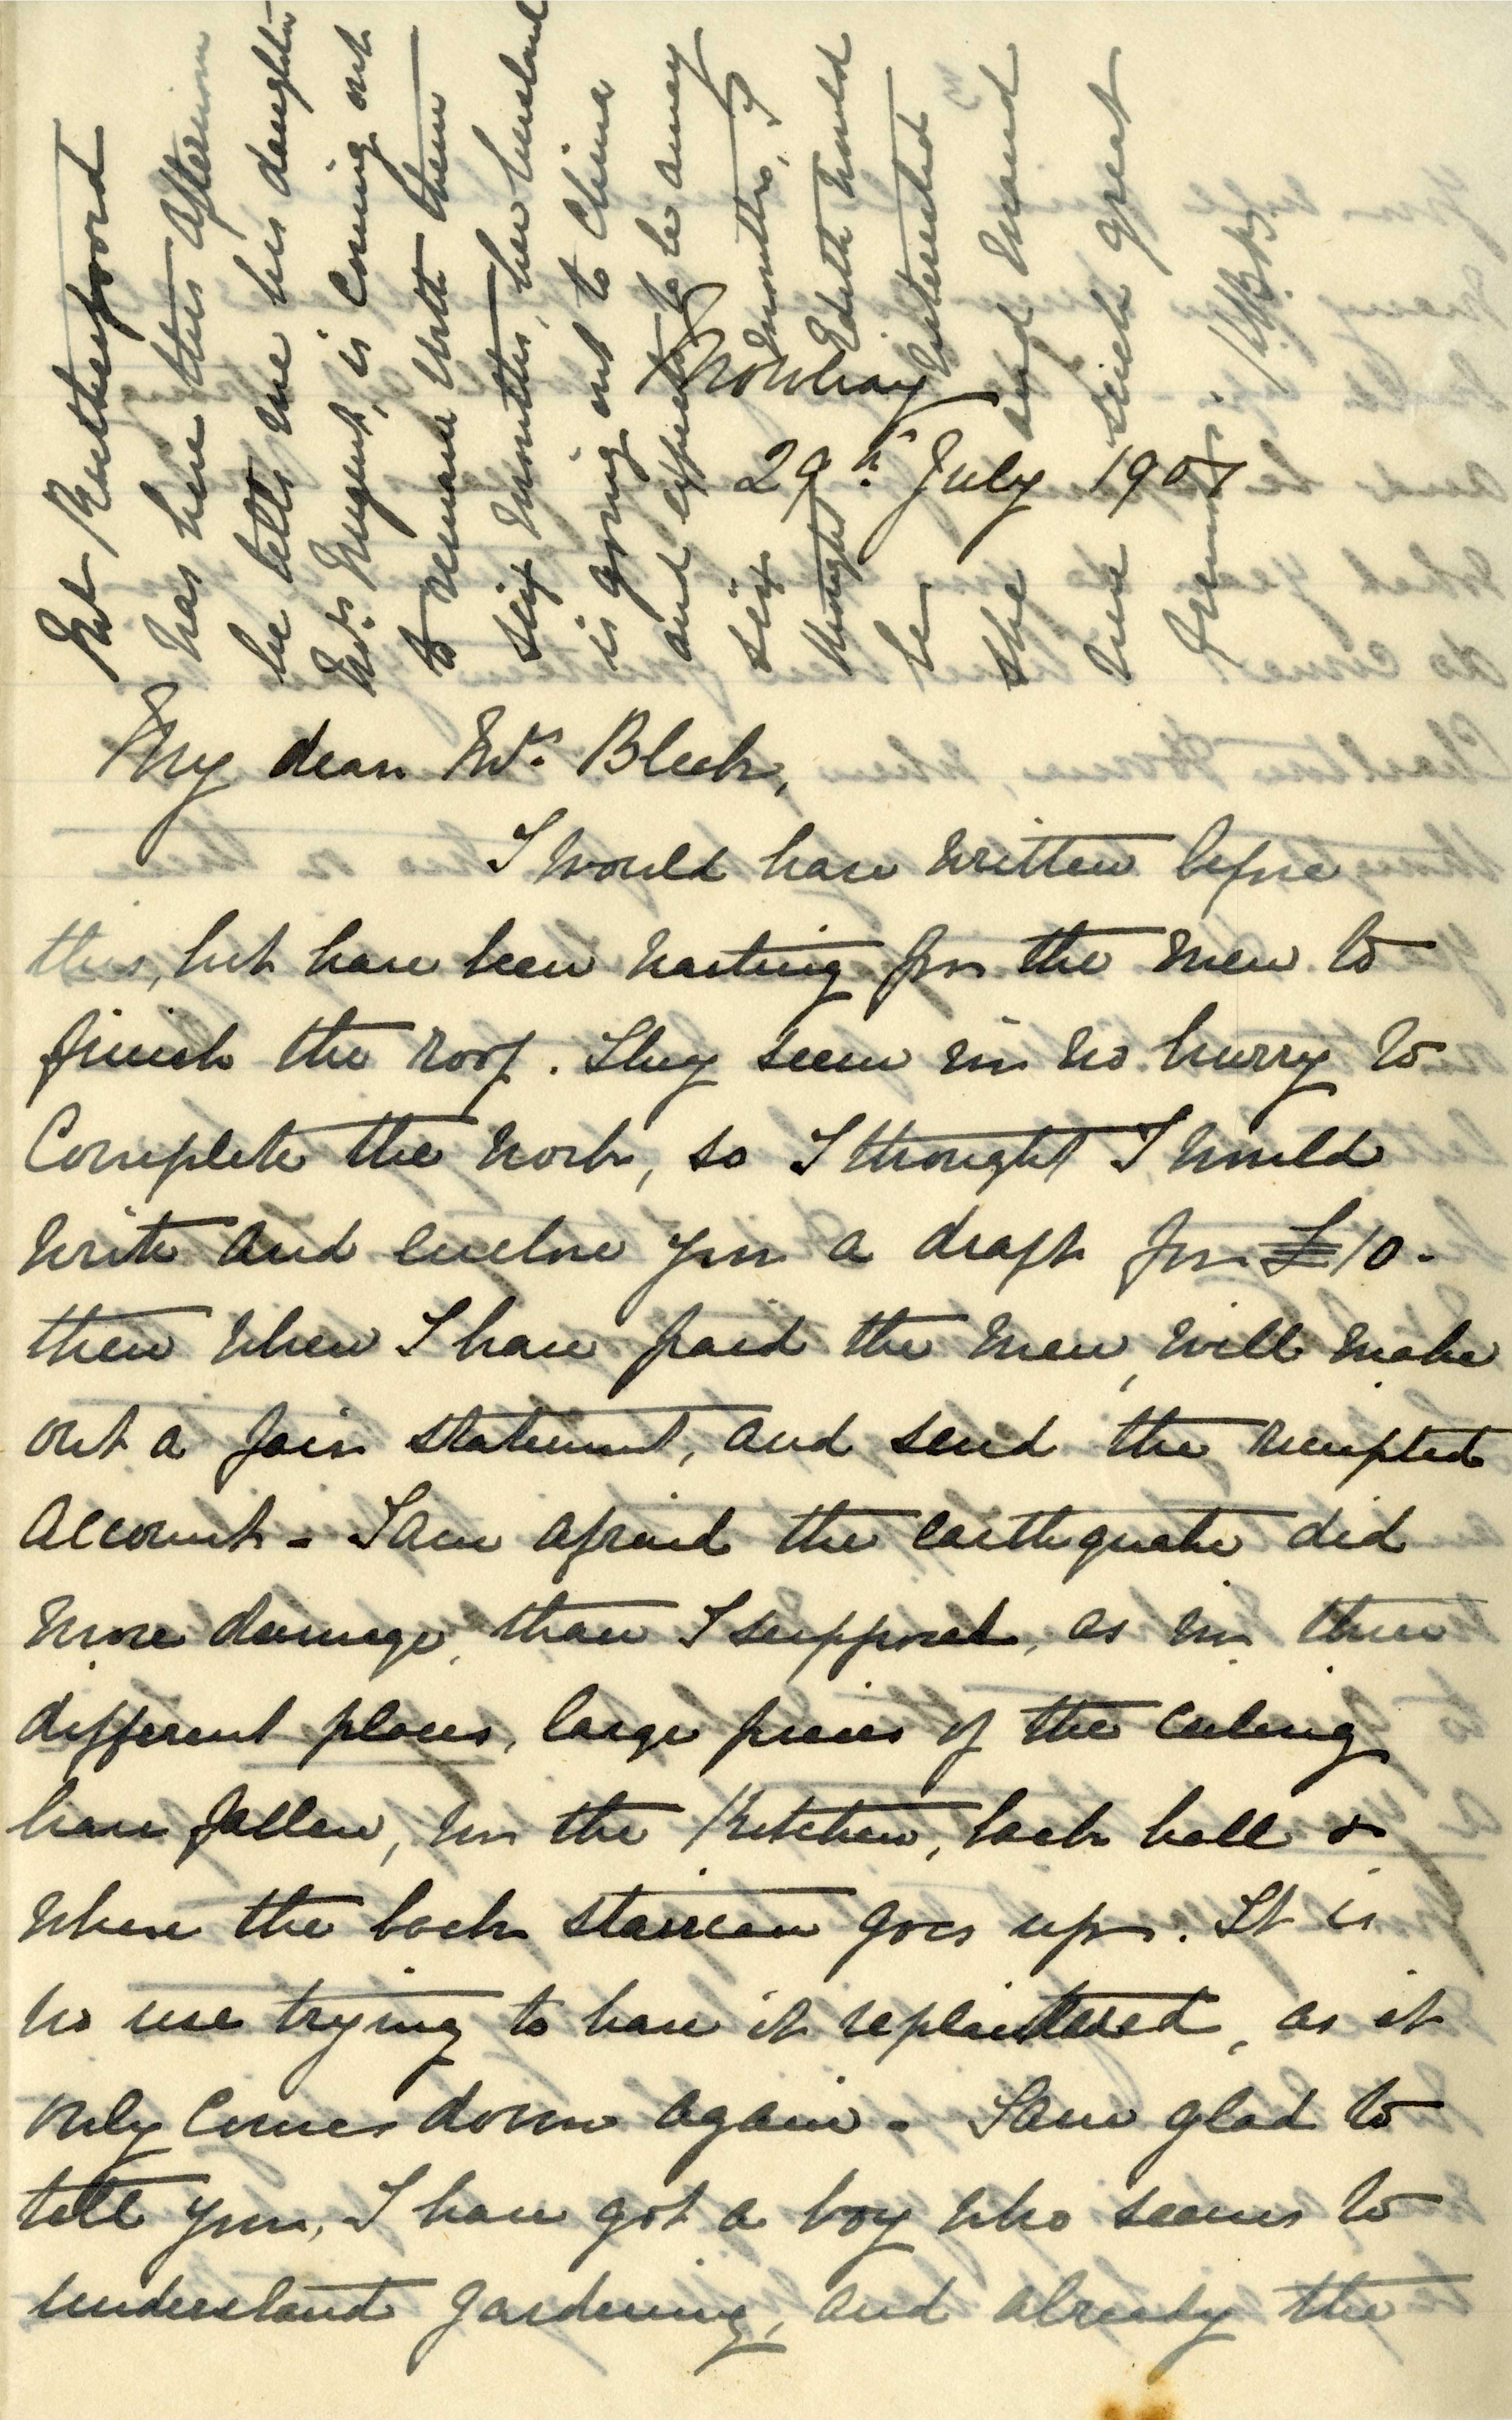 Mowbray
29th July 1907
My dear Mrs. Bleek,
I would have written before
this, but have been waiting for the men to
finish the roof. They seem in no hurry to
Complete the work, so I thought I would
write and enclose you a draft for £10 -
then when I have paid the men, will make
out a fair statement, and send the receipted
account - I am afraid the earthquake did
more damage, than I supposed, as in three
different places, large pieces of the ceiling
have fallen, in the Kitchen, back hall &
where the back staircase goes up. It is
no use trying to have it replastered, as it
only comes down again - I am glad to
tell you, I have got a boy who seems to
understand gardening, and already the
Mr Rutherfoord
was here this afternoon
he tells me his daughter
Mrs Nugent, is coming out
to remain with them
six months, her husband
is going out to China
and expects to be away
six months, I
thought Edith would
be interested
she and Maud
were such great
friends